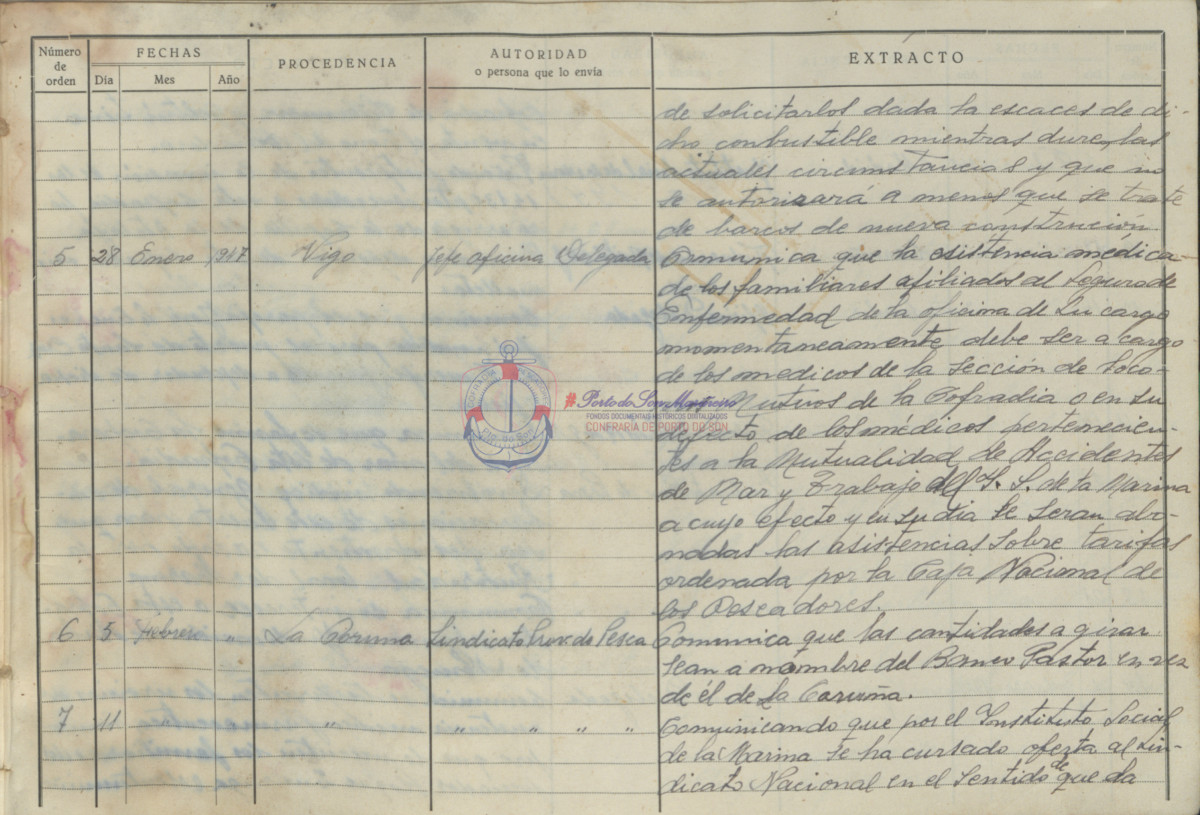 Número de orden FECHAS Día Mes Año PROCEDENCIA AUTORIDAD o persona que lo envía EXTRACTO
de solicitarlos dada la escaces de di-
cho conbustible mientras duren las
actuales circunstancias y que no
se autorizará a menos que se trate
de barcos de nueva construción.
5 28 Enero 1947 Vigo Jefe oficina Delegada Comunica que la asistencia médica
de los familiares afiliados al Seguro de
Enfermedad de la oficina de su cargo
momentaneamente debe ser a cargo
de los medicos de la sección de Soco-
Mutuos de la Cofradia o en su
defecto de los médicos pertenecien-
tes a la Mutualidad de Accidentes
de Mar y Trabajo del I. S. de la Marina
a cuyo efecto y en su dia le seran abo-
nadas las asistencias sobre tarifas
ordenada por la Caja Nacional de
los Pescadores.
6 5 Febrero " La Coruna Sindicato Prov. de Pesca Comunica que las cantidades a girar
sean a nombre del Banco Pastor en vez
de él de La Coruña.
7 11 " " " " " " Comunicando que por el Instituto Social
de la Marina se ha cursado oferta al Sin-
dicato Nacional en el sentido de que la
#Porto do Son Mariñeiro
FONDOS DOCUMENTAIS HISTÓRICOS DIGITALIZADOS
CONFRARÍA DE PORTO DO SON